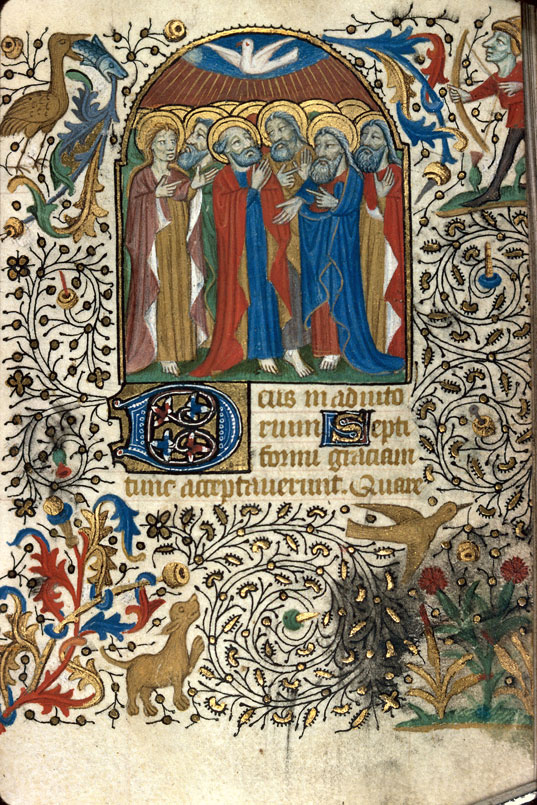 Deus in adiuto
rium Septi
formi graciam
tunc acceptaverunt. Quare